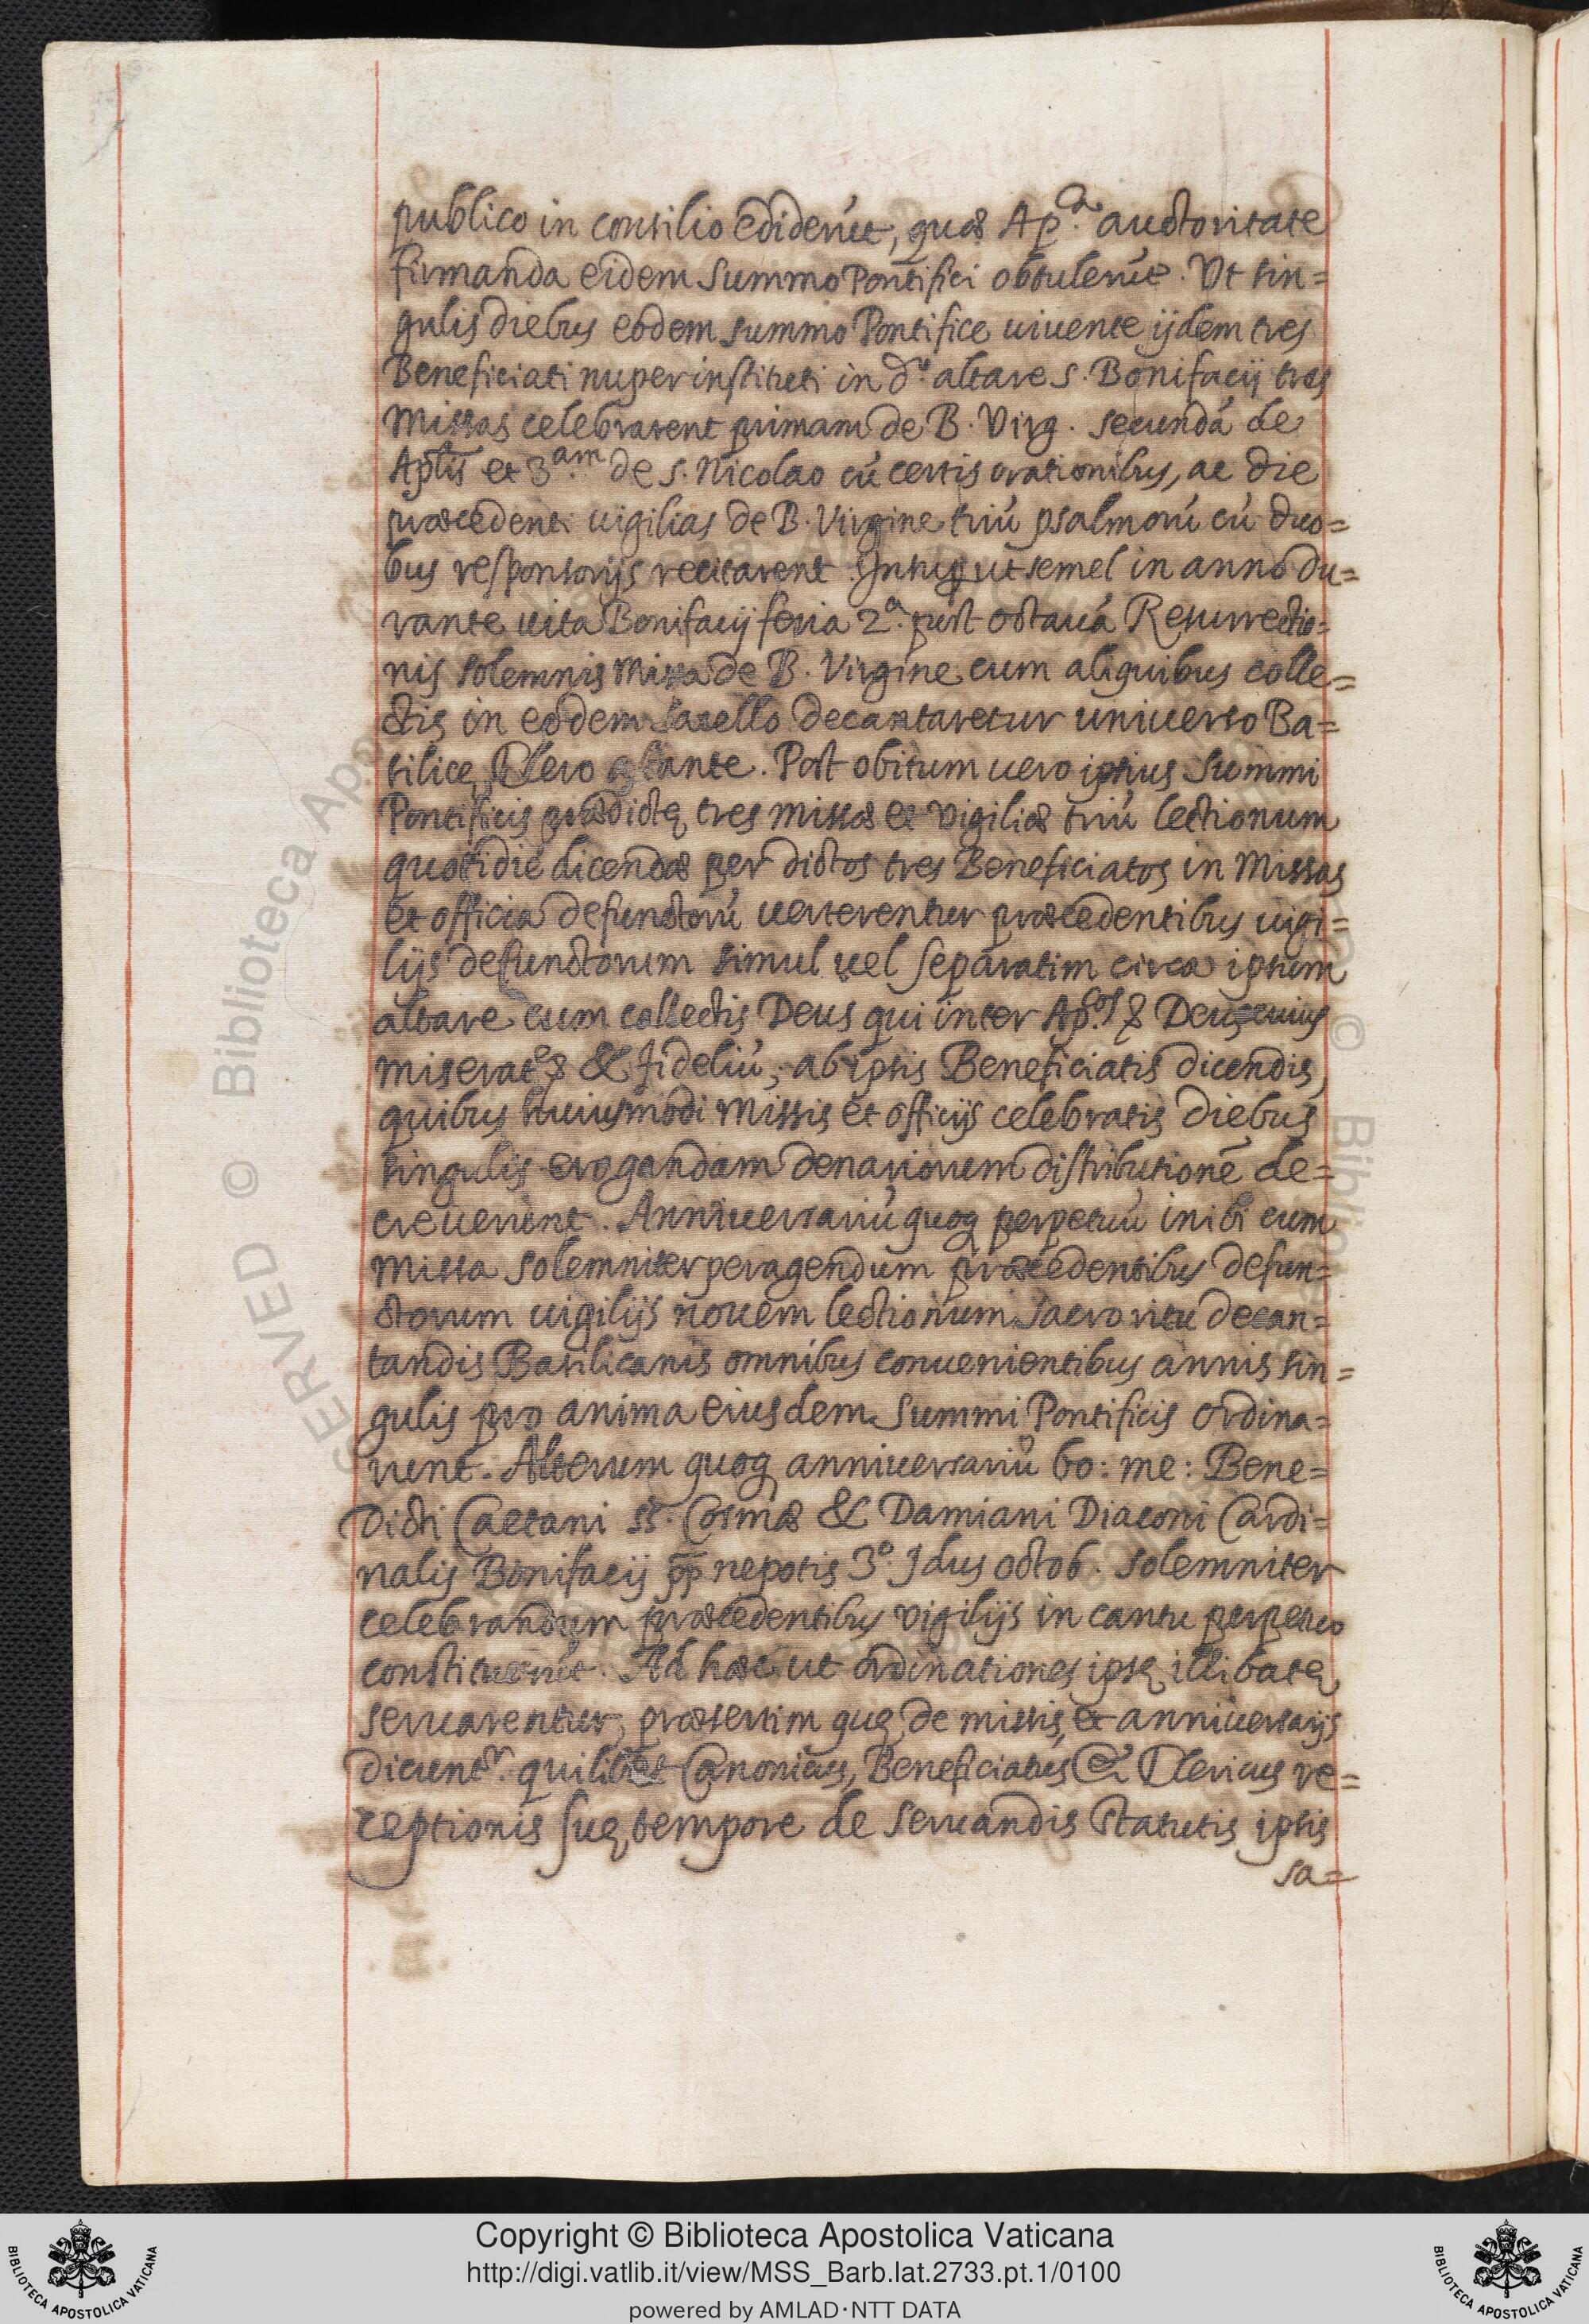 publico in consilio ediderũt, quæ Ap.ᵃ auctoritate
firmanda eidem summo Pontifici obtulerũt. Vt sin=
gulis diebus eodem summo Pontifice uiuente ijdem tres
Beneficiati nuper instituti in d.º altare S. Bonifacij tres
Missas celebrarent primam de B. Virg. secundã de
Aplis et 3.ᵃᵐ de S. Nicolao cũ certis orationibus, ac die
præcedenti uigilias de B. Virgine triũ psalmorũ cũ duo=
bus responsorijs recitarent. ut semel in anno du=
rante uita Bonifacij feria 2.ᵃ post octauã Resurrectio=
nis solemnis Missa de B. Virgine cum aliquibus colle=
ctis in eodem sacello decantaretur uniuerso Ba=
silicę Clero astante. Post obitum uero ipsius summi
Pontificis prædictę tres missæ et vigiliæ triũ lectionum
quotidie dicendæ per dictos tres Beneficiatos in Missas
et officia defunctorũ uerterentur præcedentibus uigi=
lijs defunctorum simul uel separatim circa ipsum
altare cum collectis Deus qui inter Ap.ᶜᵒˢ & Deus cuius
miserat.ᵉ & fideliũ, ab ipsis Beneficiatis dicendis,
quibus huiusmodi Missis et officijs celebratis diebus
singulis erogandam denariorum distributionẽ de=
creuerunt. Anniuersariũ quoq perpetuũ inibi cum
Missa solemniter peragendum præcedentibus defun=
ctorum uigilijs nouem lectionum sacro ritu decan=
tandis Basilicanis omnibus conuenientibus annis sin=
gulis pro anima eiusdem summi Pontificis ordina=
runt. Alterum quoq anniuersariũ bo: me: Bene=
dicti Caetani SS. Cosmæ & Damiani Diaconi Cardi=
nalis Bonifacij pp̃ nepotis 3.º Idus octob. solemniter
celebrandum præcedentibus vigilijs in cantu perpetuo
constituerũt. Ad hæc ut ordinationes ipsę illibatę
seruarentur, præsertim quę de missis, et anniuersarijs
dicunt.ʳ quilibet Canonicus, Beneficiatus, & Clericus re=
ceptionis suę tempore de seruandis statutis ipsis
sa=
Copyright © Biblioteca Apostolica Vaticana
http://digi.vatlib.it/view/MSS_Barb.lat.2733.pt.1/0100
powered by AMLAD·NTT DATA
BIBLIOTECA APOSTOLICA VATICANA
BIBLIOTECA APOSTOLICA VATICANA